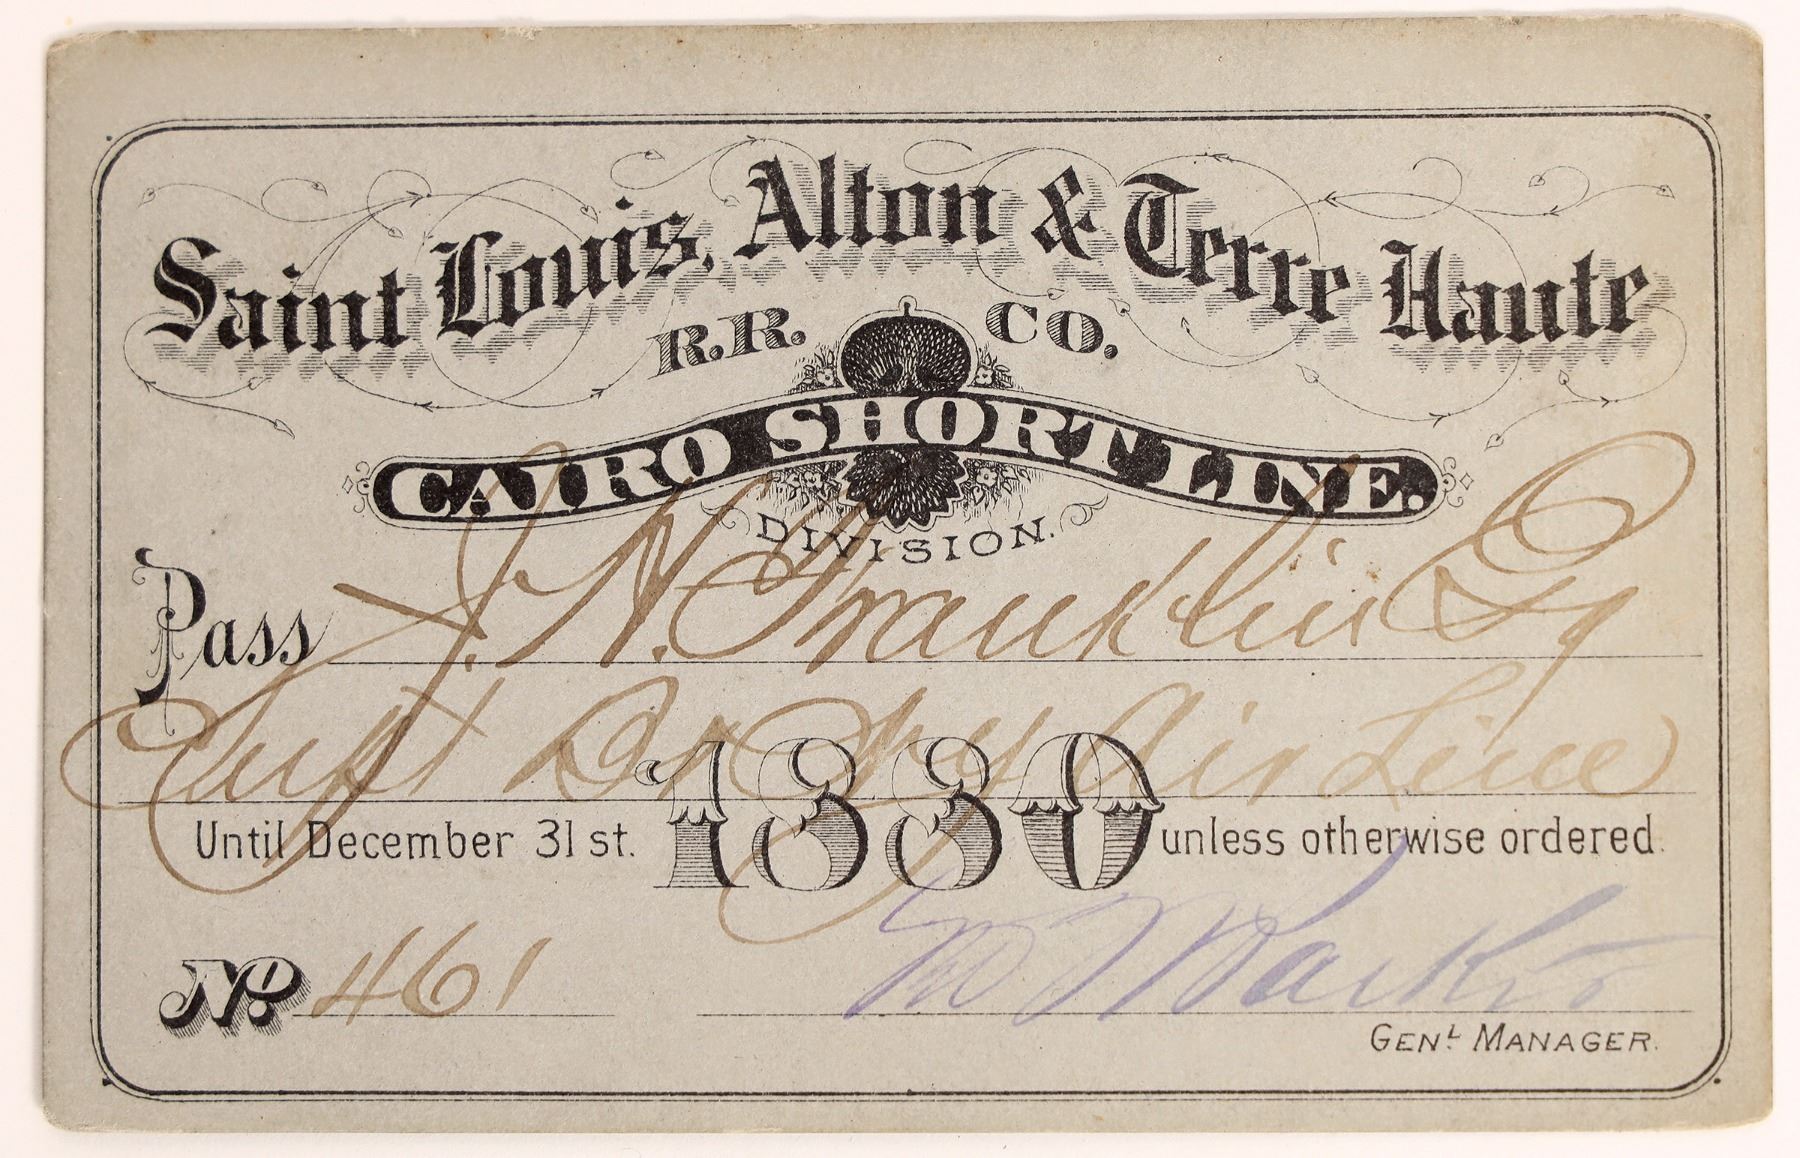 Saint Louis, Alton & Terre Haute
R.R. CO.
CAIRO SHORT LINE.
DIVISION.
Pass J. N. Franklin Esq
Supt Air Line
Until December 31st. 1880 unless otherwise ordered.
No. 461
Parker
GENL MANAGER.